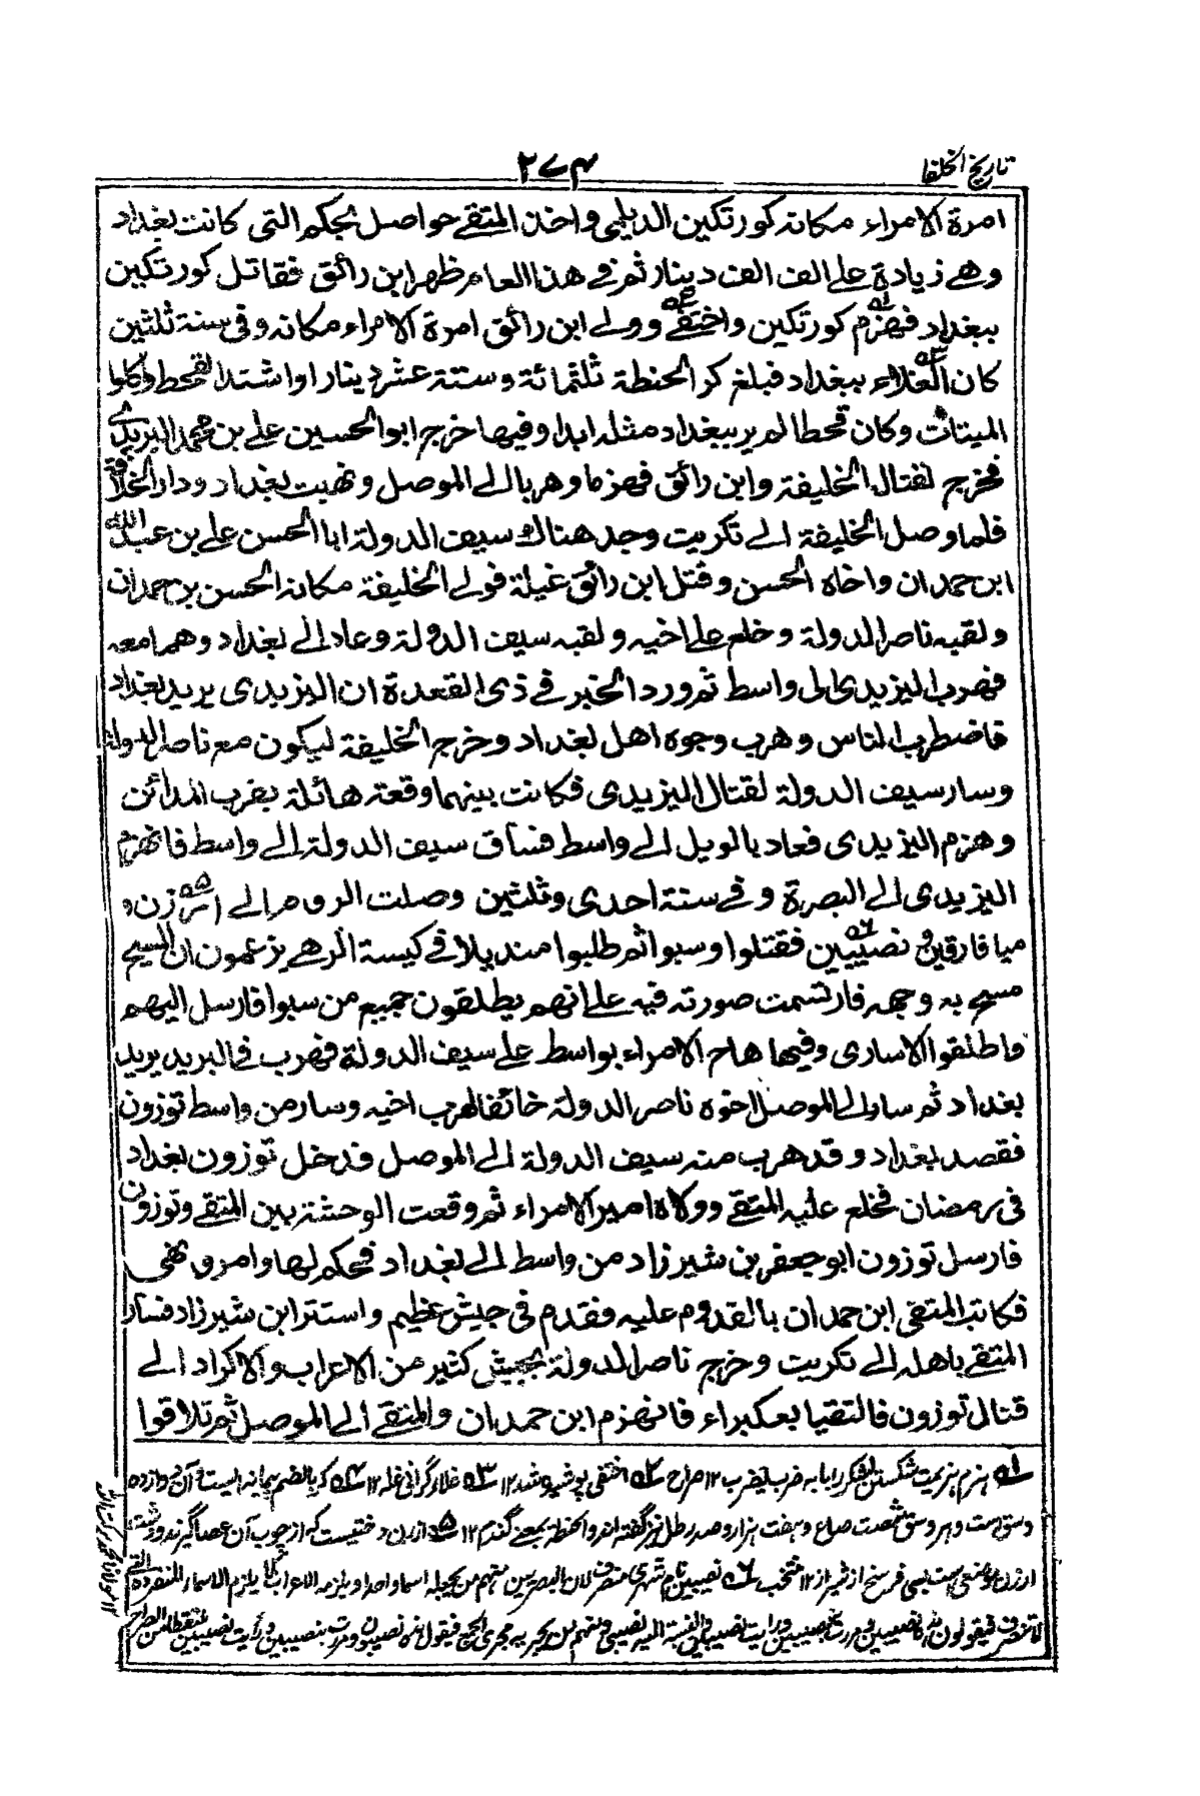 تاريخ الخلفا
٢٧٤
امرة الامراء مكانه كورتكين الديلمي واخذ المتقے حواصل بجكم التي كانت ببغداد
وهے زيادة علے الف الف دينار ثم في هذا العام ظهر ابن رائق فقاتل كورتكين
ببغداد فهزم كورتكين واختفے وولے ابن رائق امرة الامراء مكانه وفي سنة ثلثين
كان الغلاء ببغداد فبلغ كر الحنطة ثلثمائة وستة عشر دينارا واشتد القحط واكلوا
الميتات وكان قحطا لم ير ببغداد مثله ابدا وفيها خرج ابو الحسين علے بن محمد اليزيدي
فخرج لقتاله الخليفة وابن رائق فهزما وهربا الے الموصل ونهبت بغداد ودار الخلافة
فلما وصل الخليفة الے تكريت وجد هناك سيف الدولة ابا الحسن علے بن عبد الله
ابن حمدان واخاه الحسن وقتل ابن رائق غيلة فولے الخليفة مكانه الحسن بن حمدان
ولقبه ناصر الدولة وخلع علے اخيه ولقبه سيف الدولة وعاد الے بغداد وهما معه
فهرب اليزيدي الى واسط ثم ورد الخبر في ذي القعدة ان اليزيدى يريد بغداد
فاضطرب الناس وهرب وجوه اهل بغداد وخرج الخليفة ليكون مع ناصر الدولة
وسار سيف الدولة لقتال اليزيدى فكانت بينهما وقعة هائلة بقرب المدائن
وهزم اليزيدى فعاد بالويل الے واسط فساق سيف الدولة الے واسط فانهزم
اليزيدى الے البصرة وفے سنة احدى وثلثين وصلت الروم الے ارزن و
ميافارقين و نصيبين فقتلوا وسبوا ثم طلبوا منديلا في كنيسة الرها يزعمون ان المسيح
مسح به وجهه فارتسمت صورته فيه علے انهم يطلقون جميع من سبوا فارسل اليهم
واطلقوا الاسارى وفيها هاج الامراء بواسط علے سيف الدولة فهرب في البريد يريد
بغداد ثم سار الے الموصل اخوه ناصر الدولة خائفا لهرب اخيه وسار من واسط توزون
فقصد بغداد وقد هرب منه سيف الدولة الے الموصل فدخل توزون بغداد
في رمضان فخلع عليه المتقے وولاه امير الامراء ثم وقعت الوحشة بين المتقے وتوزون
فارسل توزون ابو جعفر بن شيرزاد من واسط الے بغداد فحكم لها وامر ونهى
فكاتب المتقى ابن حمدان بالقدوم عليه فقدم في جيش عظيم واستتر ابن شيرزاد فسار
المتقے باهله الے تكريت وخرج ناصر الدولة بجيش كثير من الاعراب والاكراد الے
قتال توزون فالتقيا بعكبراء فانهزم ابن حمدان والمتقے الے الموصل ثم تلاقوا
هزم هزيمت شكستن لشكر را بابه ضرب يضرب ١٢ صراح اختفى پوشيده شد ١٢ غلاء گرانى غله ١٢ كر بالضم پيمانه ايست وآن دوازده
وسق است وهر وسق شصت صاع وهفت هزار وصد رطل نيز گفته اند والحنطه بمعنے گندم ١٢ ارزن درختيست كه از چوب آن عصا گيرند
ارزن موضعى است بسى فرسخ از شيراز ١٢ منتخب نصيبين نام شهرى